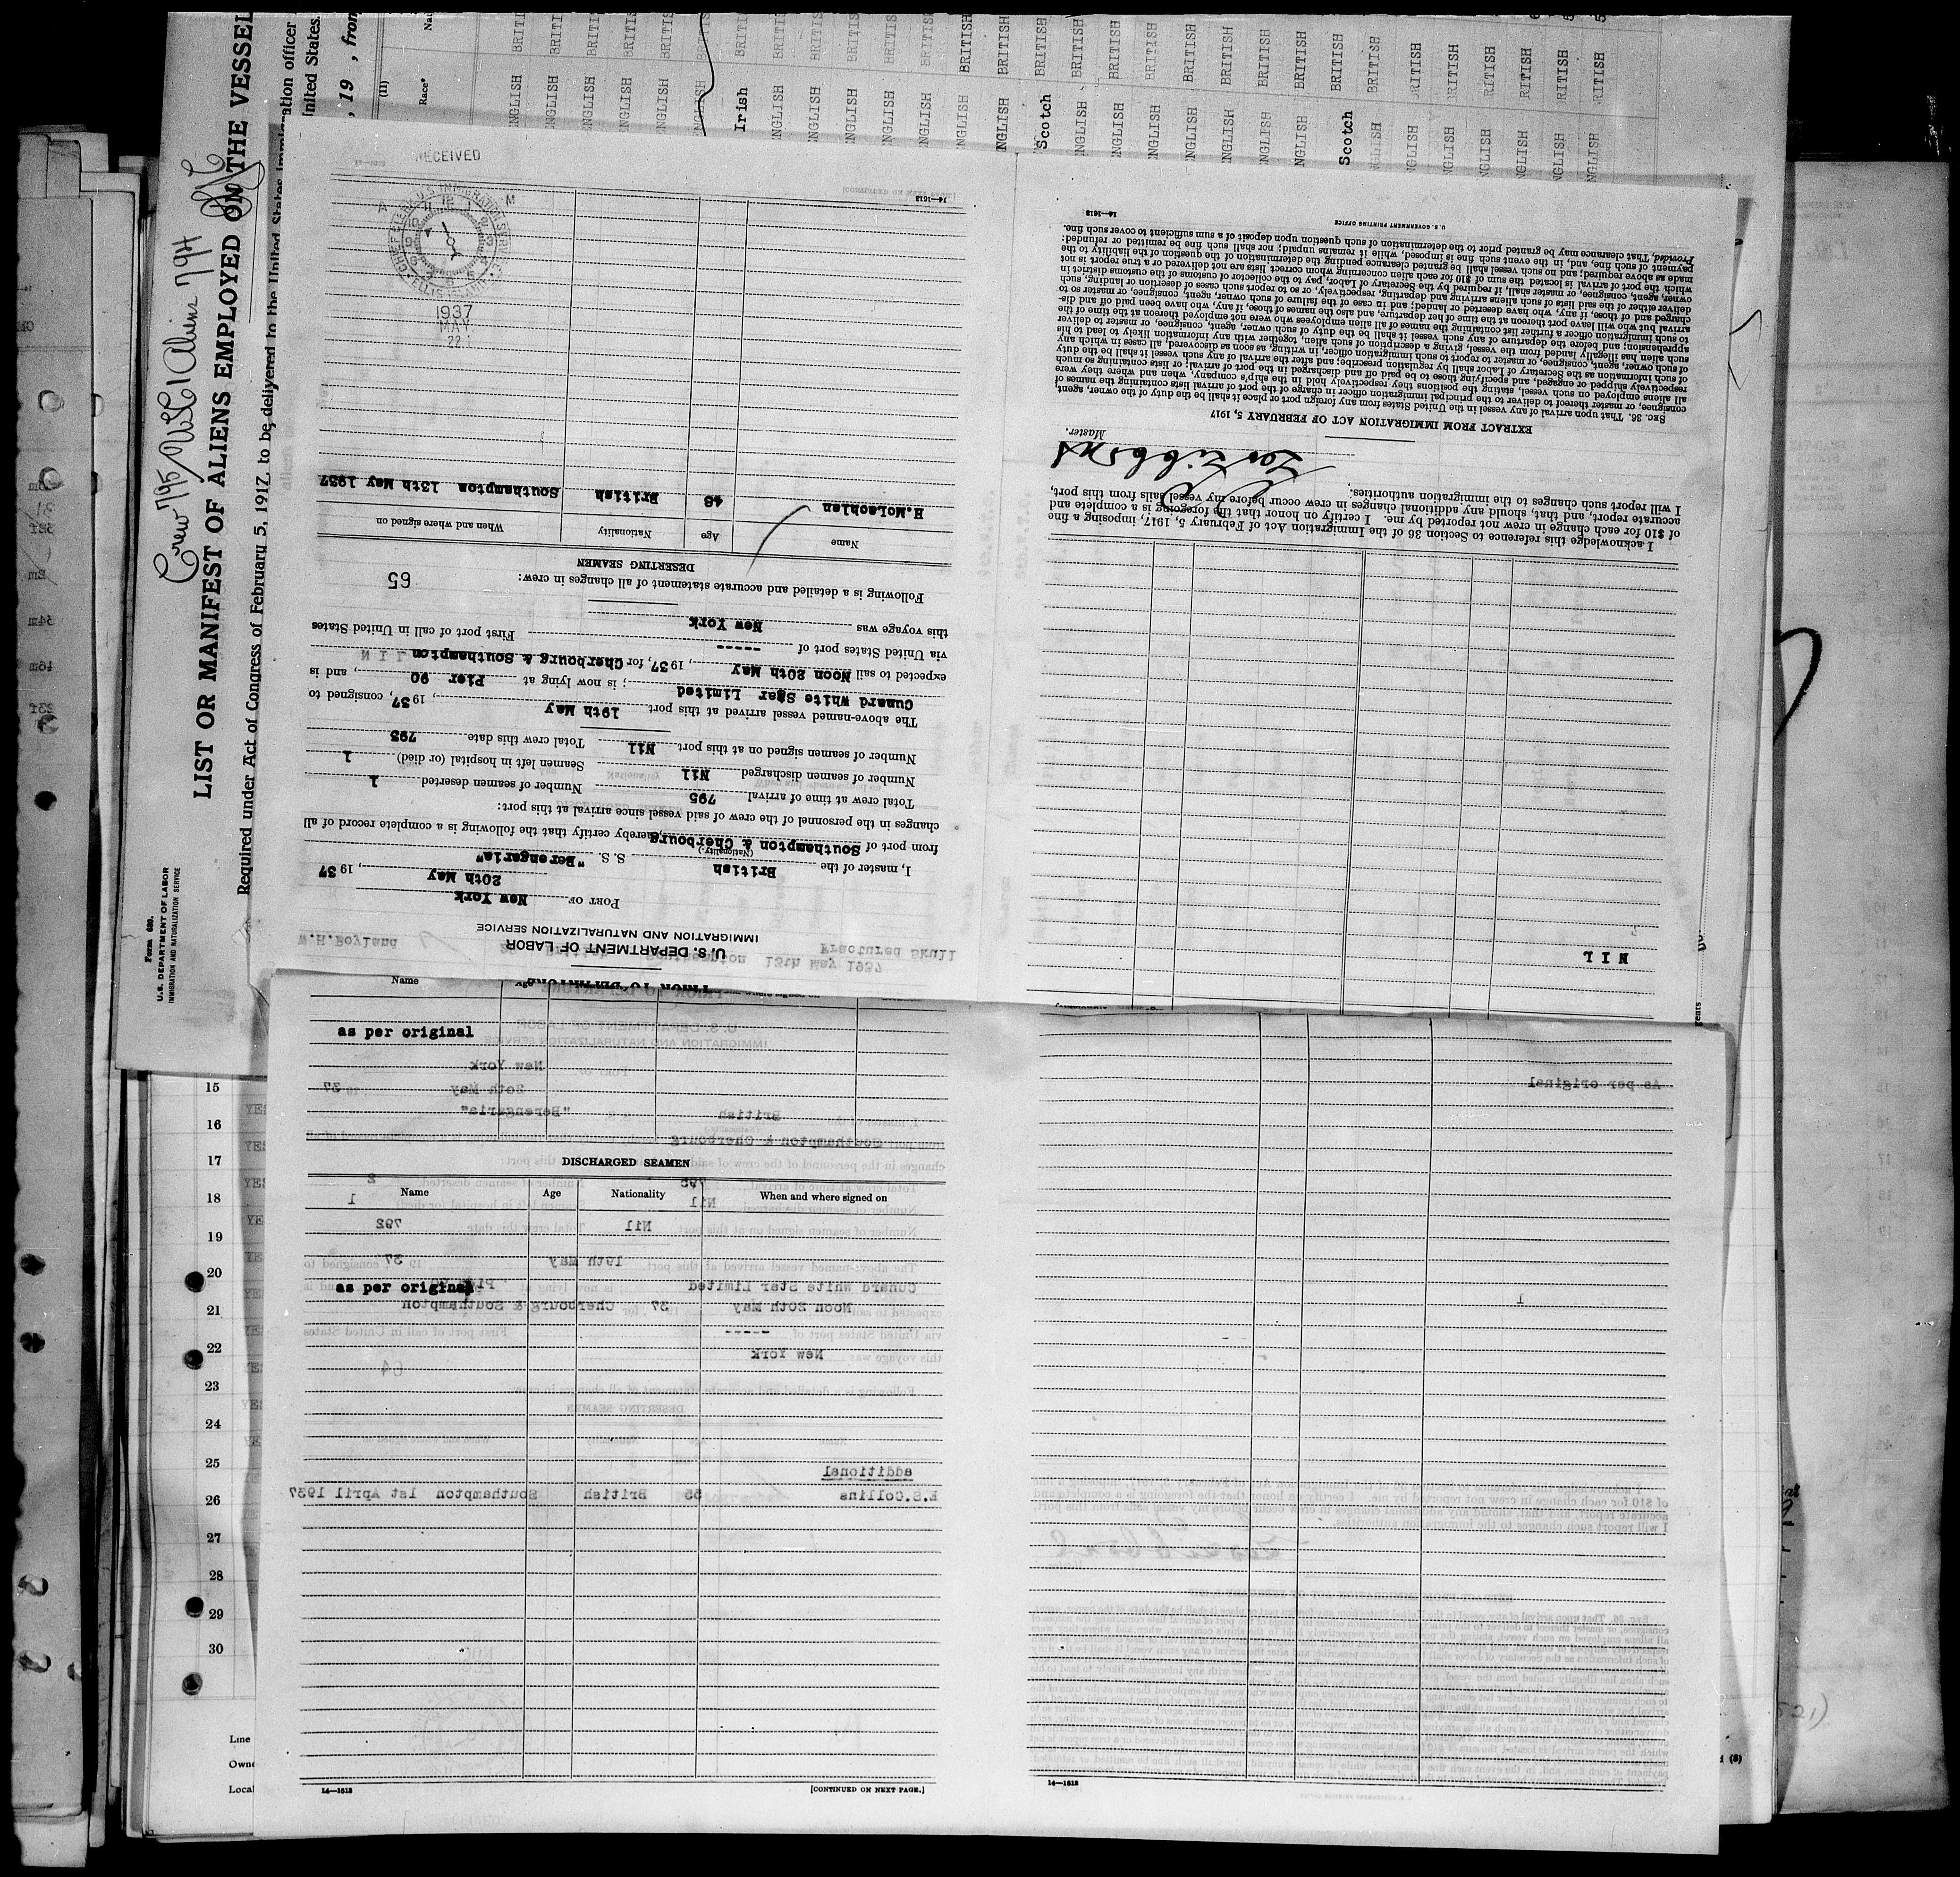 Form 680.
U.S. DEPARTMENT OF LABOR
IMMIGRATION AND NATURALIZATION SERVICE
Crew 795 Aliens 794
LIST OR MANIFEST OF ALIENS EMPLOYED ON THE VESSEL
Required under Act of Congress of February 5, 1917, to be delivered to the United States immigration officer
United States.
, 19 , from
(11)
Race*
ENGLISH BRITISH
ENGLISH BRITISH
ENGLISH BRITISH
ENGLISH BRITISH
ENGLISH BRITISH
ENGLISH BRITISH
Irish BRITISH
ENGLISH BRITISH
ENGLISH BRITISH
ENGLISH BRITISH
ENGLISH BRITISH
ENGLISH BRITISH
ENGLISH BRITISH
ENGLISH BRITISH
Scotch BRITISH
ENGLISH BRITISH
ENGLISH BRITISH
ENGLISH BRITISH
ENGLISH BRITISH
ENGLISH BRITISH
ENGLISH BRITISH
ENGLISH BRITISH
Scotch BRITISH
ENGLISH BRITISH
ENGLISH BRITISH
ENGLISH BRITISH
ENGLISH BRITISH
ENGLISH BRITISH
ENGLISH BRITISH
ENGLISH BRITISH
PRIOR TO DEPARTURE
U.S. DEPARTMENT OF LABOR
IMMIGRATION AND NATURALIZATION SERVICE
PORT OF New York
20th May, 1937
I, master of the British S. S. "Berengaria"
(Nationality.)
from port of Southampton & Cherbourg, hereby certify that the following is a complete record of all
changes in the personnel of the crew of said vessel since arrival at this port:
Total crew at time of arrival 795 Number of seamen deserted 1
Number of seamen discharged Nil Seamen left in hospital (or died) 1
Number of seamen signed on at this port Nil Total crew this date 793
The above-named vessel arrived at this port 19th May, 1937, consigned to
Cunard White Star Limited; is now lying at Pier 90, and is
expected to sail Noon 20th May, 1937, for Cherbourg & Southampton
via United States port of ----- First port of call in United States
this voyage was New York
Following is a detailed and accurate statement of all changes in crew: 65
DESERTING SEAMEN
Name Age Nationality When and where signed on
H.McLachlan 48 British Southampton 13th May 1937
14—1613
[CONTINUED ON NEXT PAGE.]
RECEIVED
CHIEF CLERK U.S. IMMIGRATION SERVICE
ELLIS ISLAND
1937
MAY
22
W.H.Boyland
Southampton 13th May 1937
Fractured Skull
NIL
I acknowledge this reference to Section 36 of the Immigration Act of February 5, 1917, imposing a fine
of $10 for each change in crew not reported by me. I certify on honor that the foregoing is a complete and
accurate report, and that, should any additional changes in crew occur before my vessel sails from this port,
I will report such changes to the immigration authorities.
Master.
EXTRACT FROM IMMIGRATION ACT OF FEBRUARY 5, 1917
SEC. 36. That upon arrival of any vessel in the United States from any foreign port or place it shall be the duty of the owner, agent,
consignee, or master thereof to deliver to the principal immigration officer in charge of the port of arrival lists containing the names of
all aliens employed on such vessel, stating the positions they respectively hold in the ship's company, when and where they were
respectively shipped or engaged, and specifying those to be paid off and discharged in the port of arrival; or lists containing so much
of such information as the Secretary of Labor shall by regulation prescribe; and after the arrival of any such vessel it shall be the duty
of such owner, agent, consignee, or master to report to such immigration officer, in writing, as soon as discovered, all cases in which any
such alien has illegally landed from the vessel, giving a description of such alien, together with any information likely to lead to his
apprehension; and before the departure of any such vessel it shall be the duty of such owner, agent, consignee, or master to deliver
to such immigration officer a further list containing the names of all alien employees who were not employed thereon at the time of the
arrival but who will leave port thereon at the time of her departure, and also the names of those, if any, who have been paid off and dis-
charged and of those, if any, who have deserted or landed; and in case of the failure of such owner, agent, consignee, or master so to
deliver either of the said lists of such aliens arriving and departing, respectively, or so to report such cases of desertion or landing, such
owner, agent, consignee, or master shall, if required by the Secretary of Labor, pay to the collector of customs of the customs district in
which the port of arrival is located the sum of $10 for each alien concerning whom correct lists are not delivered or a true report is not
made as above required; and no such vessel shall be granted clearance pending the determination of the question of the liability to the
payment of such fine, and, in the event such fine is imposed, while it remains unpaid; nor shall such fine be remitted or refunded:
Provided, That clearance may be granted prior to the determination of such question upon deposit of a sum sufficient to cover such fine.
U.S. GOVERNMENT PRINTING OFFICE
14—1613
Name
as per original
New York
20th May 37
British "Berengaria"
Southampton & Cherbourg
DISCHARGED SEAMEN
Name Age Nationality When and where signed on
795 2
Nil 1
Nil 792
19th May 37
as per original
Cunard White Star Limited
Noon 20th May 37 Cherbourg & Southampton
-----
New York
64
DESERTING SEAMEN
additional
E.S.Collins 55 British Southampton 1st April 1937
14—1613
[CONTINUED ON NEXT PAGE.]
As per original
1
14—1613
15
16
17
18
19
20
21
22
23
24
25
26
27
28
29
30
Line
Owne
Local